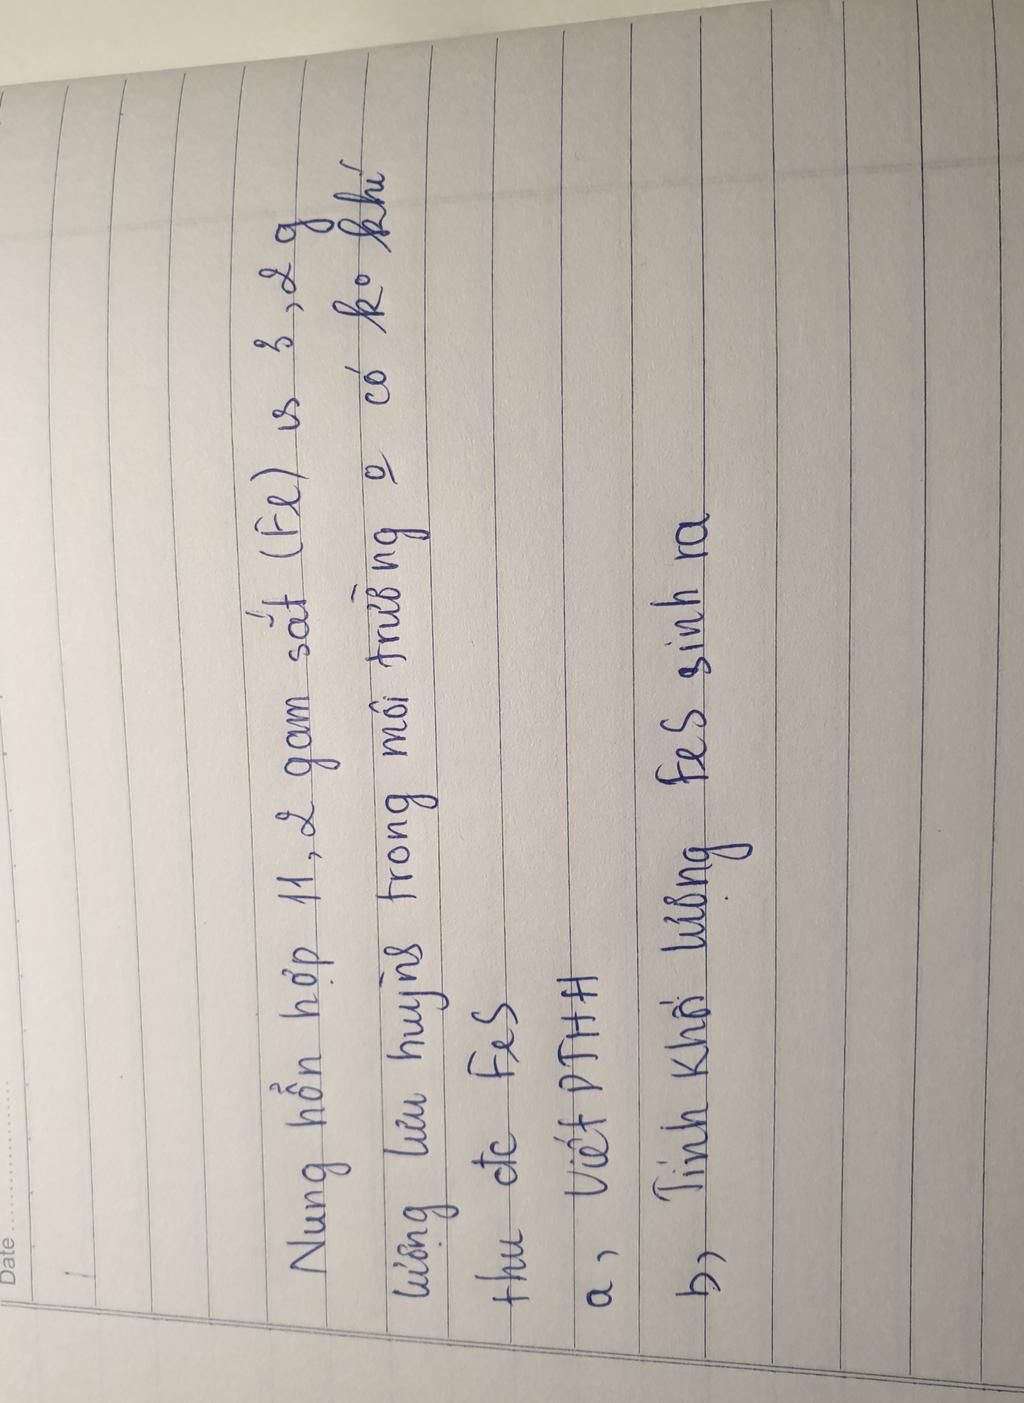 Date
Nung hỗn hợp 11,2 gam sắt (Fe) vs 3,2 g
lượng lưu huỳns trong môi trường o có ko khí
thu đc FeS
a, Viết PTHH
b, Tính khối lượng FeS sinh ra